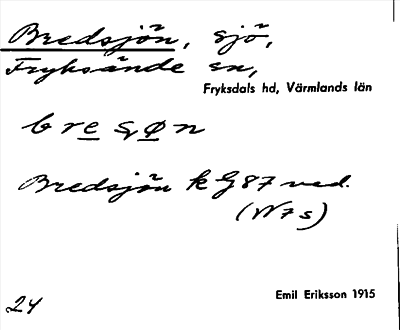 Bredsjön, sjö,
Fryksände sn,
Fryksdals hd, Värmlands län
bresøn
Bredsjön k G87 ned.
(N7s)
24
Emil Eriksson 1915